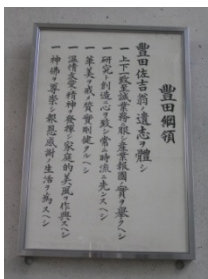 豊田綱領
豊田佐吉翁ノ遺志ヲ體シ
一 上下一致至誠業務ニ服シ産業報國ノ實ヲ擧グベシ
一 研究ト創造ニ心ヲ致シ常ニ時流ニ先ンズベシ
一 華美ヲ戒メ質實剛健タルベシ
一 温情友愛ノ精神ヲ發揮シ家庭的美風ヲ作興スベシ
一 神佛ヲ尊崇シ報恩感謝ノ生活ヲ為スベシ